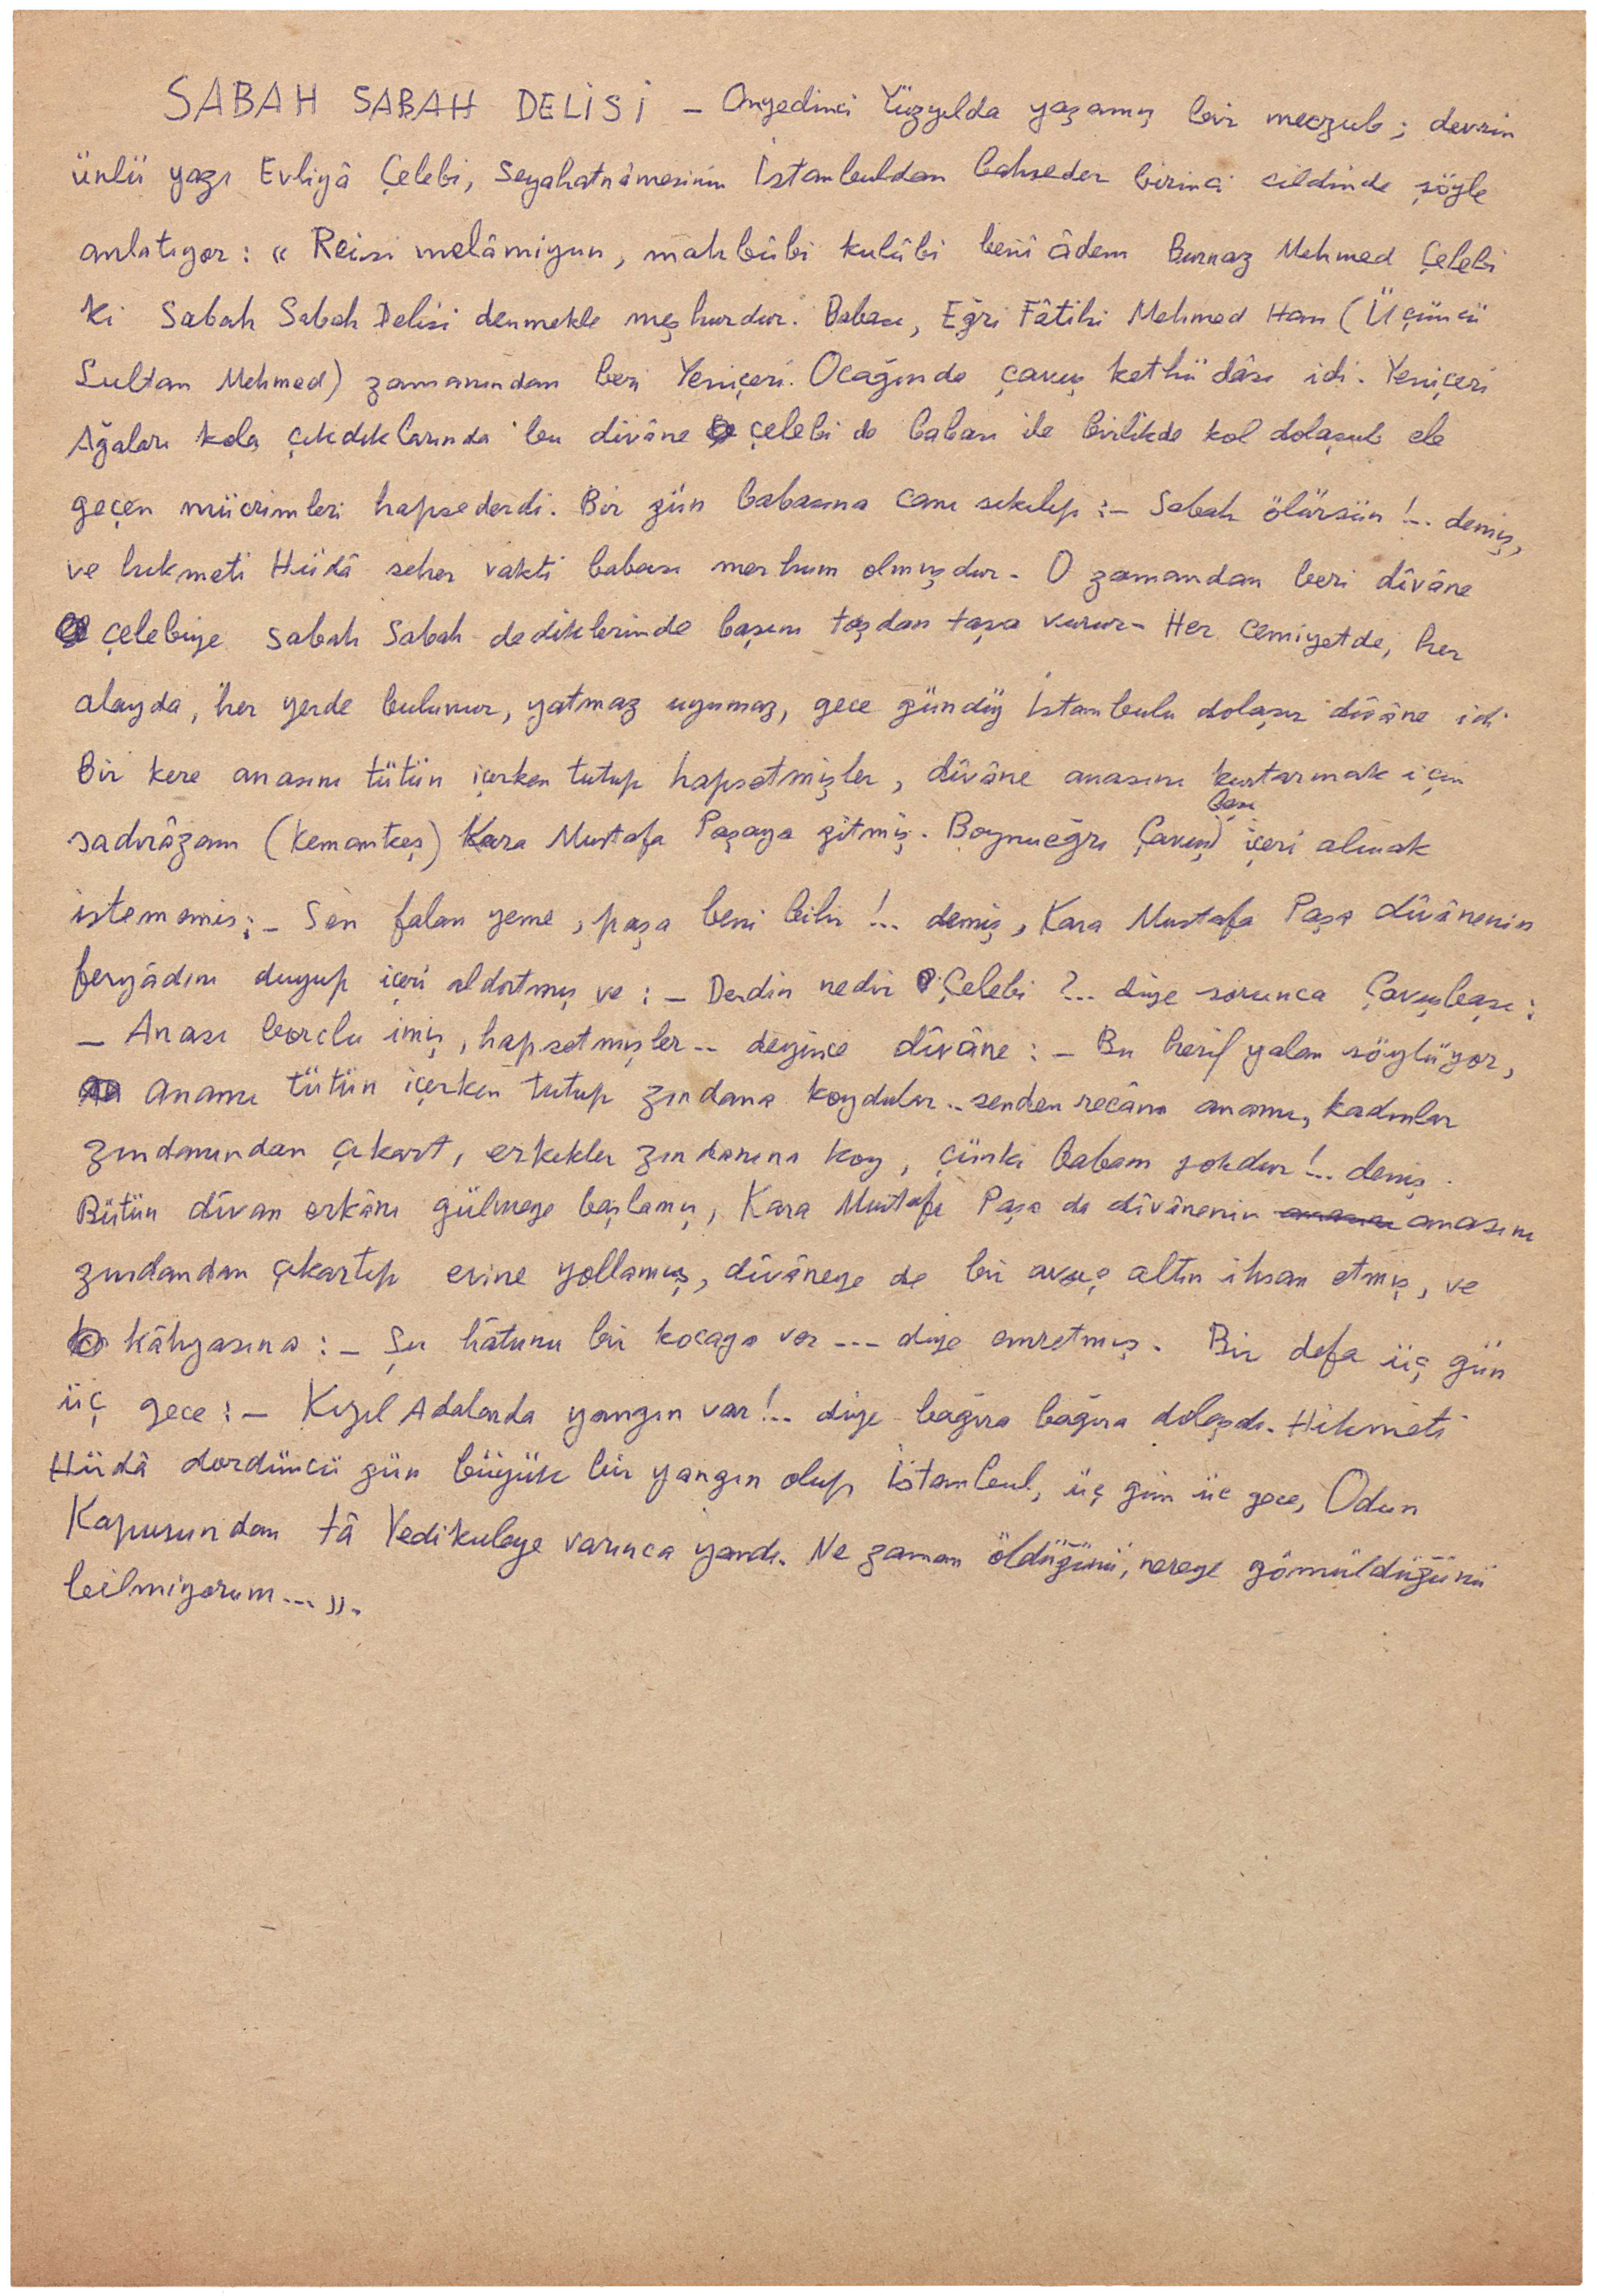 SABAH SABAH DELİSİ – Onyedinci Yüzyılda yaşamış bir meczub; devrin
ünlü yazı Evliyâ Çelebi, Seyahatnâmesinin İstanbuldan bahseden birinci cildinde şöyle
anlatıyor: « Reisi melâmiyun, mahbûbi kulûbi benî âdem Burnaz Mehmed Çelebi
ki Sabah Sabah Delisi denmekle meşhurdur. Babası, Eğri Fâtihi Mehmed Han (Üçüncü
Sultan Mehmed) zamanından beri Yeniçeri Ocağında çavuş kethüdâsı idi. Yeniçeri
Ağaları kola çıkdıklarında bu divâne çelebi de babası ile birlikde kol dolaşub ele
geçen mücrimleri hapsederdi. Bir gün babasına canı sıkılıp :– Sabah ölürsün !.. demiş,
ve hikmeti Hüdâ seher vakti babası merhum olmuşdur. O zamandan beri dîvâne
çelebiye sabah sabah dediklerinde başını taşdan taşa vurur. Her cemiyetde, her
alayda, her yerde bulunur, yatmaz uyumaz, gece gündüz İstanbulu dolaşır dîvâne idi
Bir kere anasını tütün içerken tutup hapsetmişler, dîvâne anasını kurtarmak için
sadırâzam (Kemankeş) Kara Mustafa Paşaya gitmiş. Boynueğri Çavuşbaşı içeri almak
istememiş :– Sen falan yeme, paşa beni bilir !.. demiş, Kara Mustafa Paşa dîvânenin
feryâdını duyup içeri aldırtmış ve :– Derdin nedir Çelebi ?.. diye sorunca Çavuşbaşı :
– Anası borclu imiş, hapsetmişler .. deyince dîvâne :– Bu herif yalan söylüyor,
anamı tütün içerken tutup zındana koydular .. senden recâm anamı, kadınlar
zındanından çıkart, erkekler zındanına koy, çünki babam yokdur !.. demiş.
Bütün dîvan erkânı gülmeye başlamış, Kara Mustafa Paşa da dîvânenin anasını
zındandan çıkartıp evine yollamış, dîvâneye de bir avuç altın ihsan etmiş, ve
kâhyasına :– Şu hâtunu bir kocaya ver ... diye emretmiş. Bir defa üç gün
üç gece :– Kızıl Adalarda yangın var !.. diye bağıra bağıra dolaşdı. Hikmeti
Hüdâ dordüncü gün büyük bir yangın olup İstanbul, üç gün üç gece, Odun
Kapusundan tâ Yedikuleye varınca yandı. Ne zaman öldüğünü, nereye gömüldüğünü
bilmiyorum ... ».